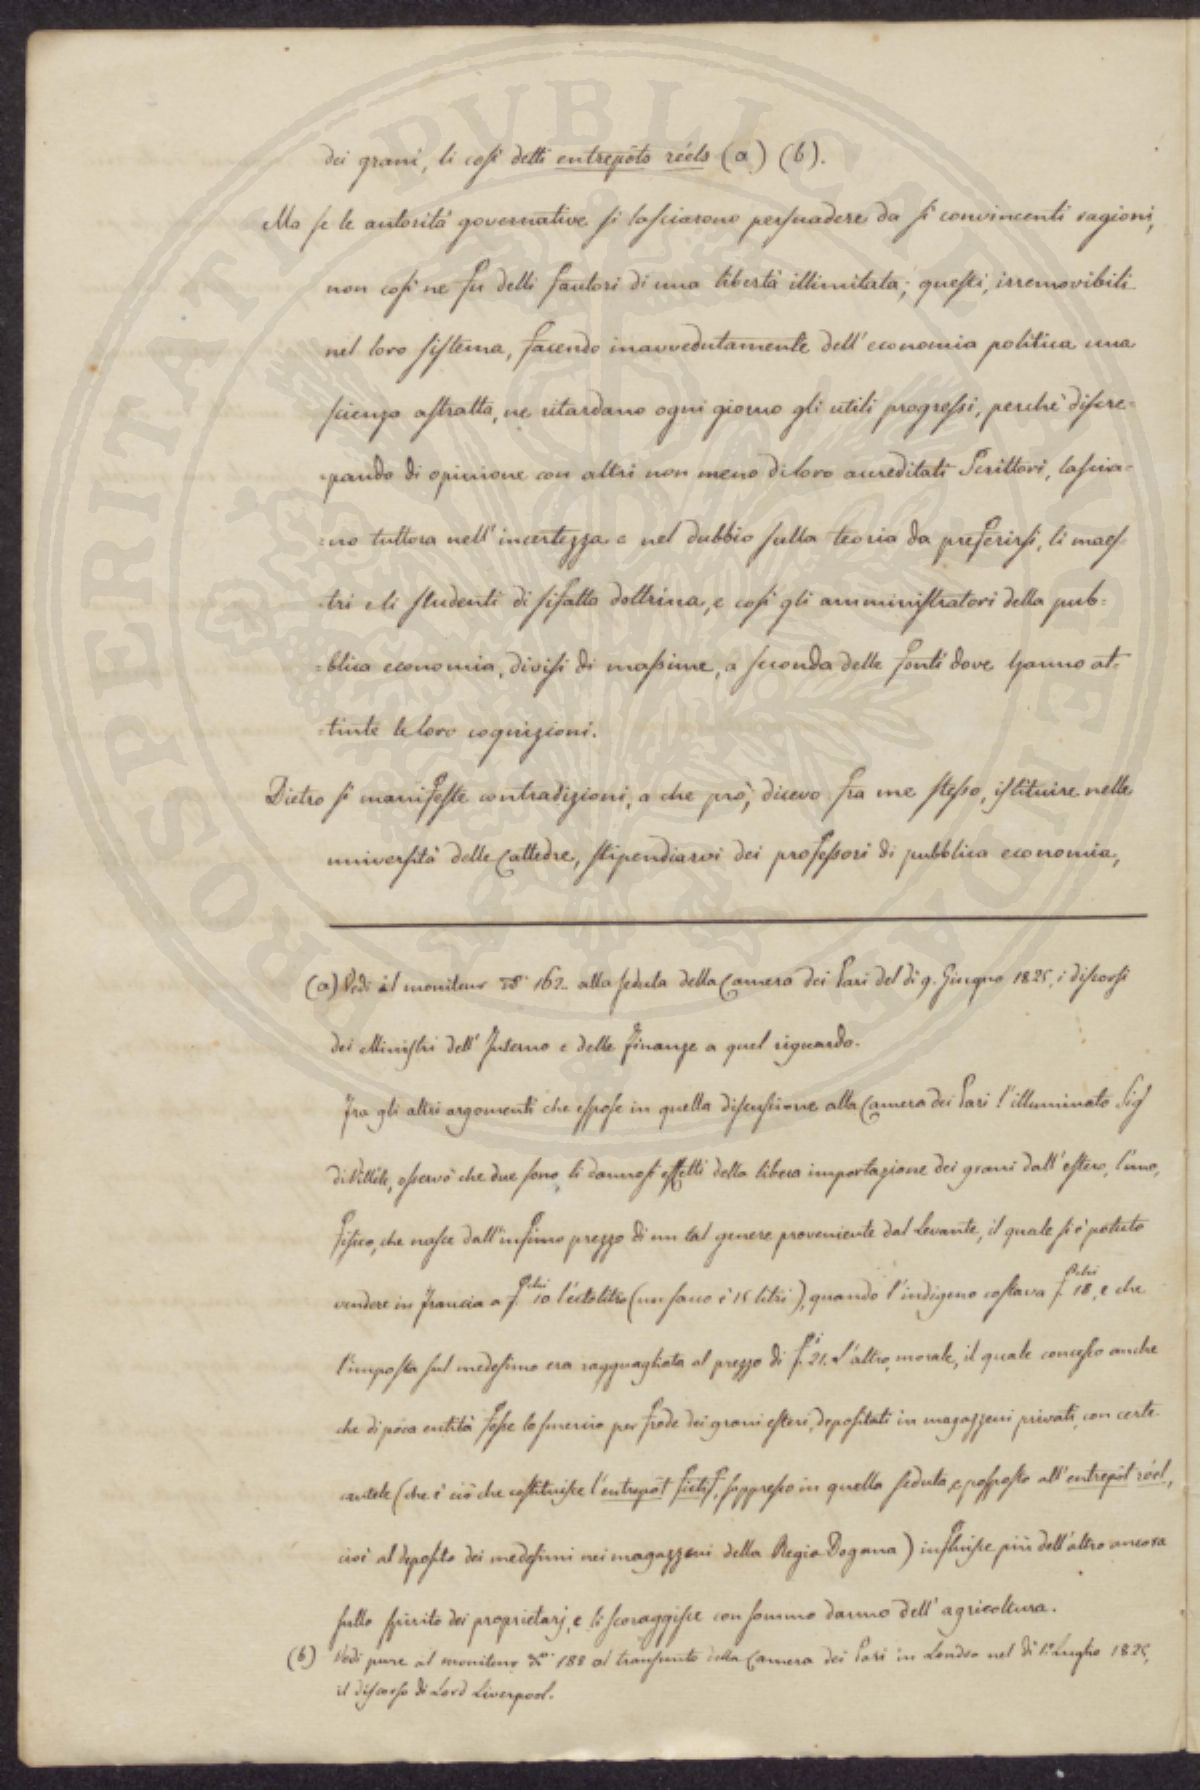 dei grani, li così detti entrepôts réels (a) (b).
Ma se le autorità governative si lasciarono persuadere da sì convincenti ragioni,
non così ne fu delli fautori di una libertà illimitata; questi, irremovibili
nel loro sistema, facendo inavvedutamente dell' economia politica una
scienza astratta, ne ritardano ogni giorno gli utili progressi, perchè discre=
=pando di opinione con altri non meno di loro accreditati Scrittori, lascia=
=no tuttora nell' incertezza e nel dubbio sulla teoria da preferirsi, li maes=
=tri e li studenti di sifatta dottrina, e così gli amministratori della pub=
=blica economia, divisi di massime, a seconda delle fonti dove hanno at=
=tinte le loro cognizioni.
Dietro sì manifeste contradizioni, a che prò, dicevo fra me stesso, istituire nelle
università delle Cattedre, stipendiarvi dei professori di pubblica economia,
(a) Vedi il moniteur N.º 162. alla seduta della Camera dei Pari del dì 9. Giugno 1825, i discorsi
dei Ministri dell' Interno e delle Finanze a quel riguardo.
Fra gli altri argomenti che espose in quella discussione alla Camera dei Pari l'illuminato Sig
di Villèle, osservò che due sono li dannosi effetti della libera importazione dei grani dall' estero, l'uno,
fisico, che nasce dall' infimo prezzo di un tal genere proveniente dal Levante, il quale si è potuto
vendere in Francia a f.chi 10 l'éctolitro (un sacco è 15 litri), quando l'indigeno costava f.chi 18, e che
l'imposta sul medesimo era ragguagliata al prezzo di f.i 21. L'altro, morale, il quale concesso anche
che di poca entità fosse lo smercio per frode dei grani esteri, depositati in magazzeni privati, con certe
cautele (che è ciò che costituisce l'entrepôt fictif, soppresso in quella seduta, e posposto all' entrepôt réel,
cioè al deposito dei medesimi nei magazzeni della Regia Dogana) influisce più dell' altro ancora
sullo spirito dei proprietarj, e li scoraggisce con sommo danno dell' agricoltura.
(b) Vedi pure al moniteur N.º 188 al transunto della Camera dei Pari in Londra nel dì 1.º Luglio 1825,
il discorso di Lord Liverpool.
PROSPERITATI PUBLICAE AUGENDAE